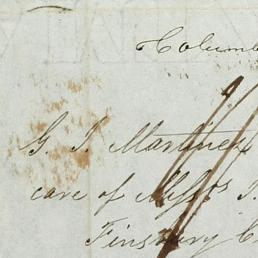 Columb
G. I. Martinez
care of Messrs
Finsbury C